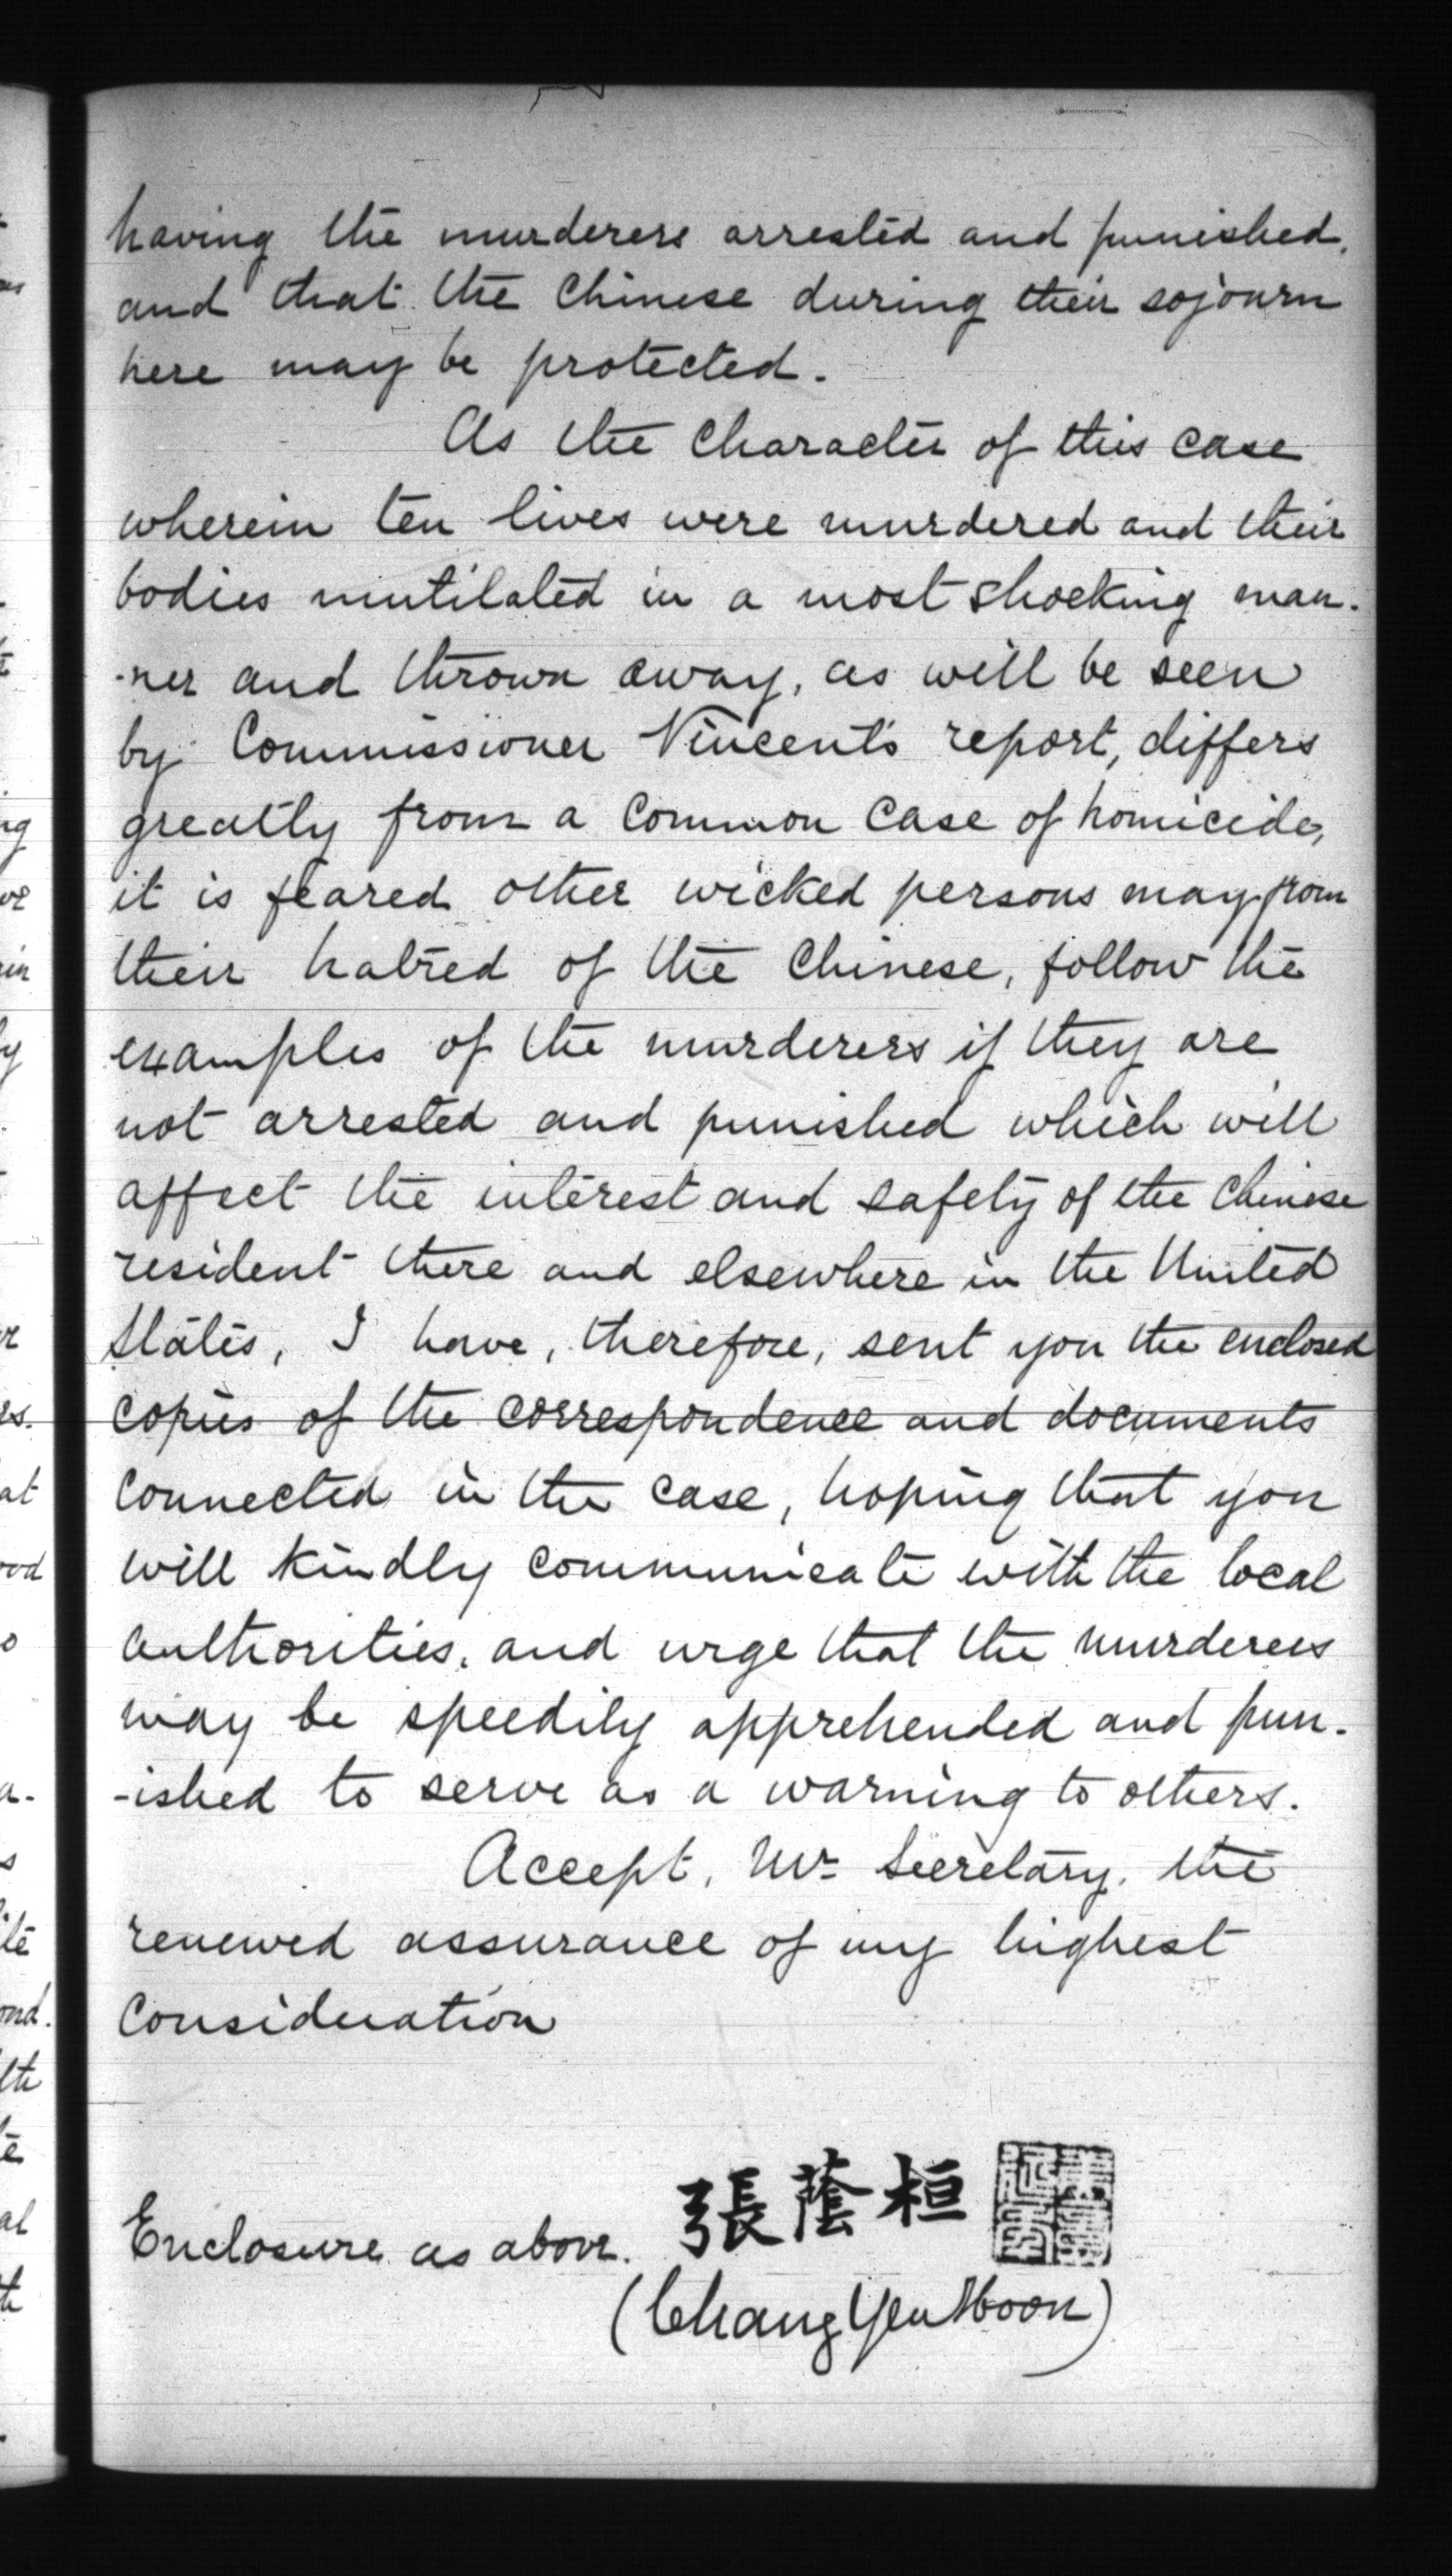 having the murderers arrested and punished,
and that the Chinese during their sojourn
here may be protected.
As the Character of this case
wherein ten lives were murdered and their
bodies mutilated in a most shocking man-
-ner and thrown away, as will be seen
by Commissioner Vincent's report, differs
greatly from a Common Case of homicide,
it is feared other wicked persons may from
their hatred of the Chinese, follow the
examples of the murderers if they are
not arrested and punished which will
affect the interest and safety of the Chinese
resident there and elsewhere in the United
States, I have, therefore, sent you the enclosed
copies of the correspondence and documents
connected in the case, hoping that you
will kindly communicate with the local
authorities, and urge that the murderers
may be speedily apprehended and pun-
-ished to serve as a warning to others.
Accept, Mr Secretary, the
renewed assurance of my highest
Consideration
張蔭桓
Enclosure as above.
(Chang Yen Hoon)